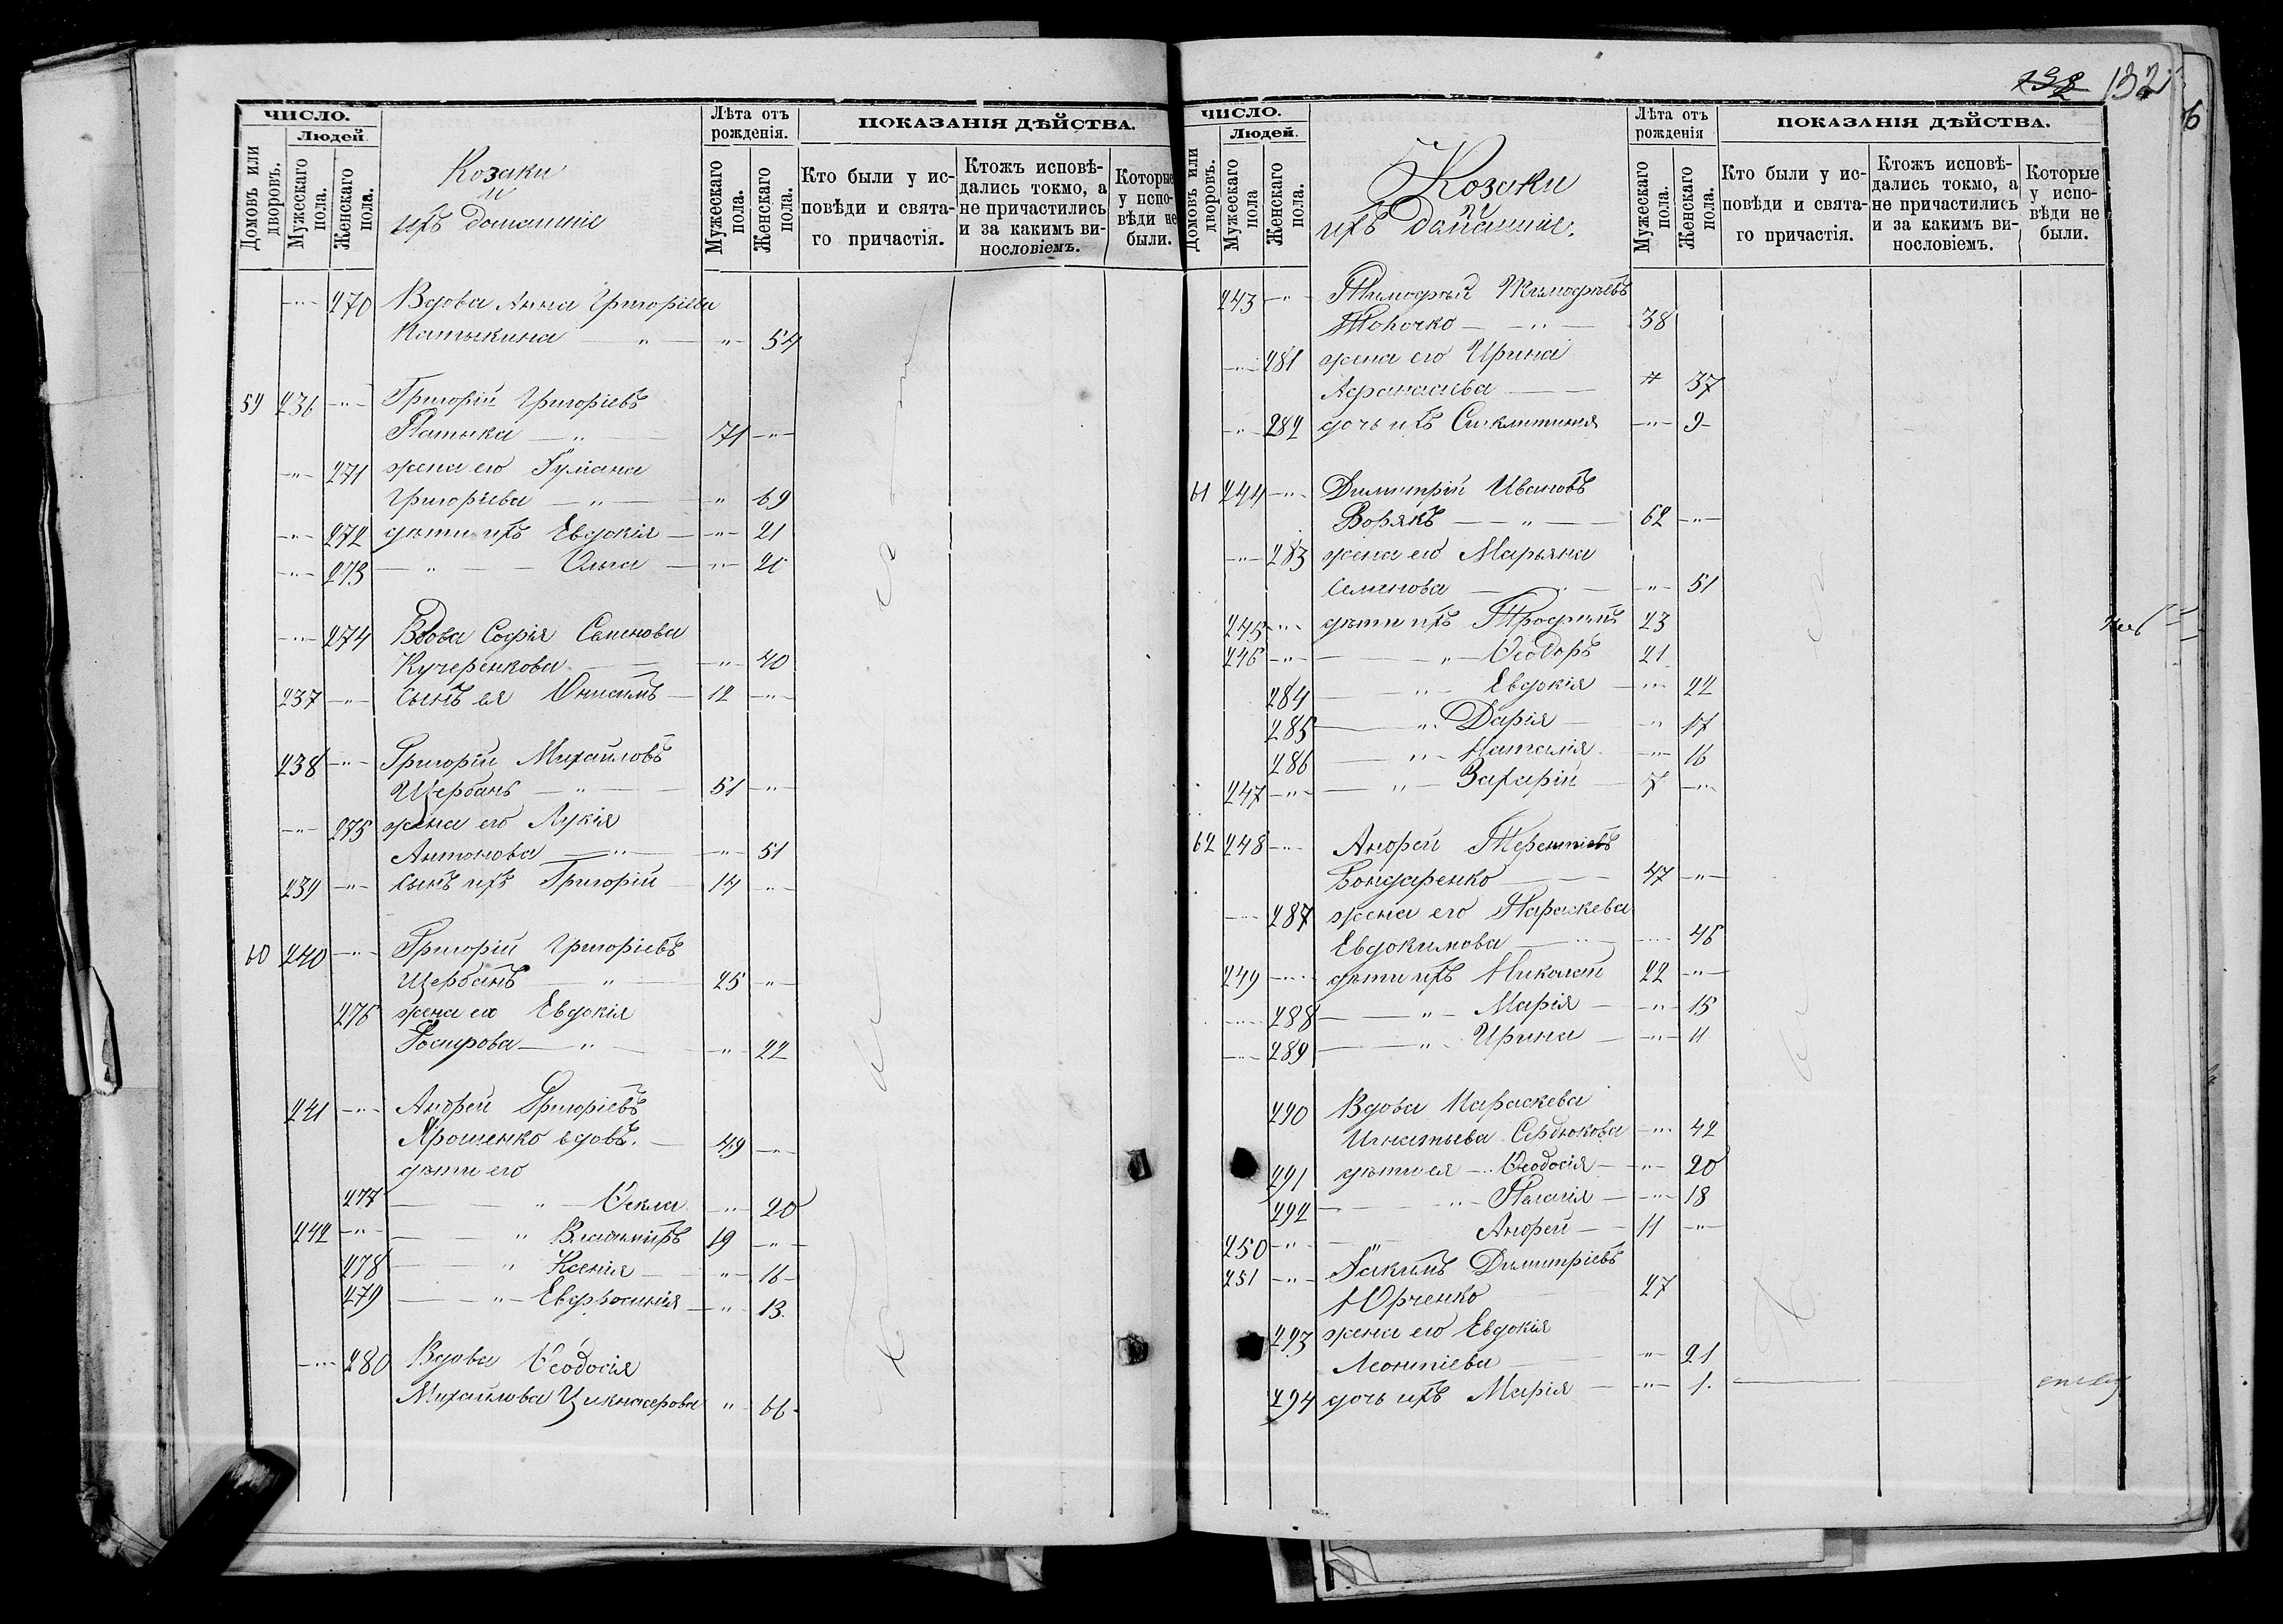 ЧИСЛО.
Людей.
Домовъ или дворовъ.
Мужескаго пола.
Женскаго пола.
Козаки
и
ихъ домашніе
Лѣта отъ рожденія.
Мужескаго пола.
Женскаго пола.
ПОКАЗАНІЯ ДѢЙСТВА.
Кто были у исповѣди и святаго причастія.
Ктожъ исповѣдались токмо, а не причастились и за какимъ винословіемъ.
Которые у исповѣди не были.
-"- 270 Вдова Анна Григоріева
Катыкина — " — -"- 54
59 236 -"- Григорій Григоріевъ
Патыка — " — 71 -"-
-"- 271 жена его Іуліана
Григоріева — " — " 69
-"- 272 дѣти ихъ Евдокія — -"- 21
-"- 273 — " — Ольга — -"- 21
-"- 274 Вдова Софія Семенова
Кучеренкова — -"- 40
237 -"- сынъ ея Онисимъ — 12 -"-
238 -"- Григорій Михаиловъ
Щербань — " — 51 -"-
-"- 275 жена его Лукія
Антонова — " — -"- 51
239 -"- сынъ ихъ Григорій — 14 -"-
60 240 -"- Григорій Григоріевъ
Щербань — " — 25 -"-
276 жена его Евдокія
— " — -"- 22
241 -"- Андрей Григоріевъ
Ярошенко вдовъ. — 49 -"-
дѣти его
277 — " — Ѳекла — -"- 20
242 -"- — " Владиміръ 19 -"-
278 — " Ксенія — -"- 16
279 — " — Евфросинія — -"- 13.
-"- 280 Вдова Ѳеодосія
Михайлова " 66
132
ЧИСЛО.
Людей.
Домовъ или дворовъ.
Мужескаго пола
Женскаго пола.
Козаки
и
ихъ домашніе.
Лѣта отъ рожденія
Мужескаго пола.
Женскаго пола.
ПОКАЗАНІЯ ДѢЙСТВА.
Кто были у исповѣди и святаго причастія.
Ктожъ исповѣдались токмо, а не причастились и за какимъ винословіемъ.
Которые у исповѣди не были.
243 -"- Тимофей Тимофѣевъ
— " — 38
-"- 281 жена его Ирина
Афанасіева — " 37
-"- 282 дочь ихъ Синклитикія -"- 9
61 244 -"- Димитрій Ивановъ
— " — 62 -"-
-"- 283 жена его Марьяна
Семенова — -"- 51
245 -"- дѣти ихъ Трофимъ 23
246 -"- — " — Ѳеодоръ 21
284 — " — Евдокія — -"- 22
285 — " Дарія — -"- 17
286 — " — Наталія — -"- 16
247 -"- — " — Захарій — 7 -"-
62 248 -"- Андрей Терентіевъ
Бондаренко — 47 -"-
-"- 287 жена его Параскева
Евдокимова — " — -"- 46
249 -"- дѣти ихъ Николай 22 -"-
-"- 288 — " — Марія — -"- 15
-"- 289 — " Ирина — -"- 11
290 Вдова Параскева
Игнатьева Сердюкова -"- 42
291 дѣти ея — Ѳеодосія — -"- 20
292 — " — Пелагія — -"- 18
250 -"- — " Андрей — 11 -"-
251 -"- Іакимъ Димитріевъ
Юрченко 27
293 жена его Евдокія
Леонтіева -"- 21
294 дочь ихъ Марія — -"- 1.